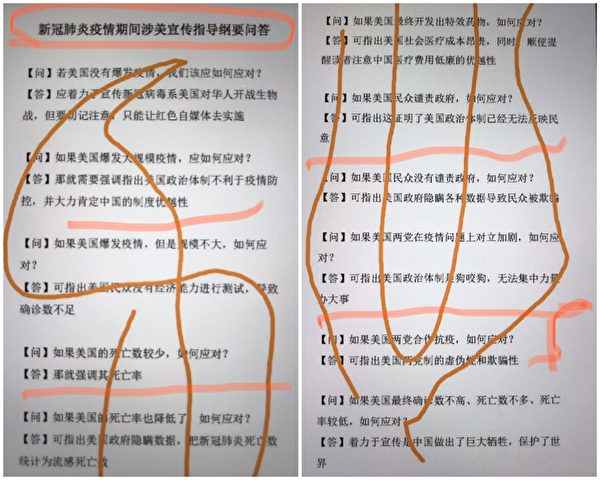 新冠肺炎疫情期间涉美宣传指导纲要问答
【问】若美国没有爆发疫情，我们该应如何应对？
【答】应着力于宣传新冠病毒系美国对华人开战生物
战，但要切记注意，只能让红色自媒体去实施
【问】如果美国爆发大规模疫情，应如何应对？
【答】那就需要强调指出美国政治体制不利于疫情防
控，并大力肯定中国的制度优越性
【问】如果美国爆发疫情，但是规模不大，如何应
对？
【答】可指出美国民众没有经济能力进行测试，导致
确诊数不足
【问】如果美国的死亡数较少，如何应对？
【答】那就强调其死亡率
【问】如果美国的死亡率也降低了，如何应对？
【答】可指出美国政府隐瞒数据，把新冠肺炎死亡数
统计为流感死亡数
【问】如果美国最终开发出特效药物，如何应对？
【答】可指出美国社会医疗成本昂贵，同时，顺便提
醒读者注意中国医疗费用低廉的优越性
【问】如果美国民众谴责政府，如何应对？
【答】可指出这证明了美国政治体制已经无法反映民
意
【问】如果美国民众没有谴责政府，如何应对？
【答】可指出美国政府隐瞒各种数据导致民众被欺骗
【问】如果美国两党在疫情问题上对立加剧，如何应
对？
【答】可指出美国政治体制是狗咬狗，无法集中力量
办大事
【问】如果美国两党合作抗疫，如何应对？
【答】可指出美国两党制的虚伪性和欺骗性
【问】如果美国最终确诊数不高、死亡数不多、死亡
率较低，如何应对？
【答】着力于宣传是中国做出了巨大牺牲，保护了世
界